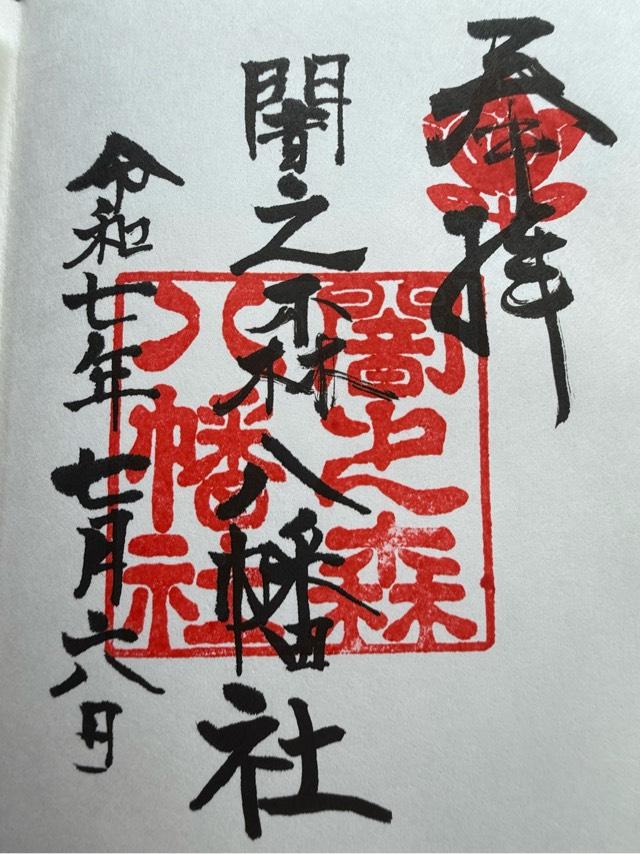 奉拝
闇之森八幡社
令和七年七月六日
闇之森
八幡社